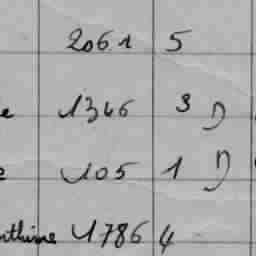 2061 5
e 1346 3 D
e 105 1 D
nthine 1786 4